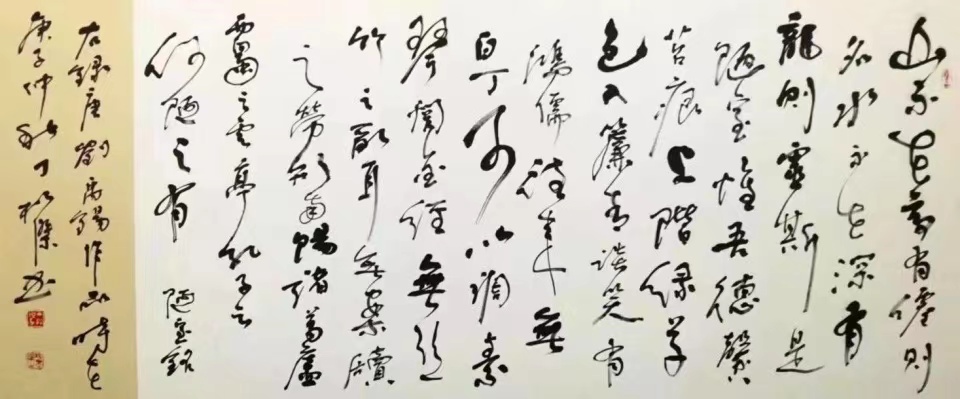 山不在高有僊則
名水不在深有
龍則靈斯是
陋室惟吾德馨
苔痕上階綠草
色入簾青談笑有
鴻儒往来無
白丁可以調素
琴閱金經無絲
竹之亂耳無案牘
之勞形南陽諸葛廬
西蜀子雲亭孔子云
何陋之有 陋室銘
右錄唐劉禹錫作品時在
庚子仲秋丁松傑書